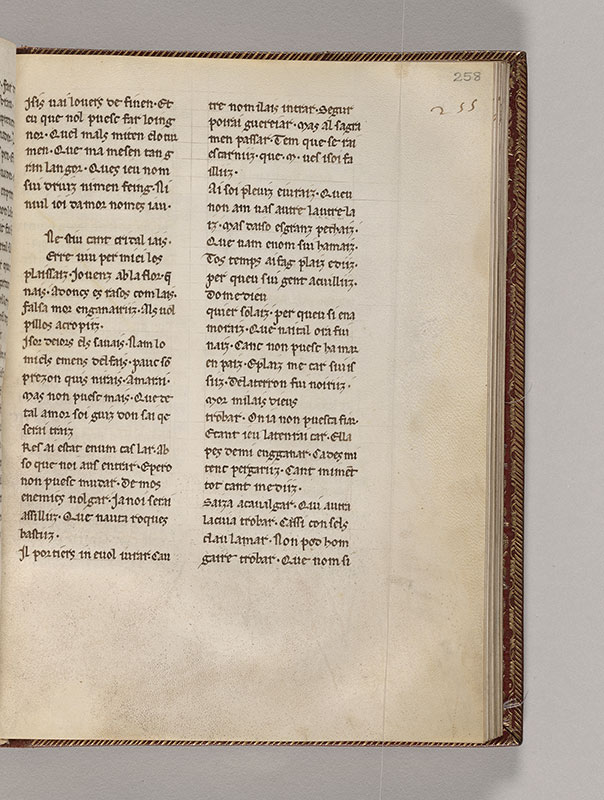 258
255
Isis uai louers de finen · Et
eu que nol puesc far loing
nor · Quel mals miten elo tur
men · Que ma mesen tan g
ran langor · Ques ieu nom
sui druz nimen feing · Ni
nuil ioi damor nomes iau ·
Ne stiu cant cri tal iais ·
Erre uiu per mici los
plaissaiz · Jouenz ab la flor · q̄
nais · Adonc es rasos com lais ·
falsa mor enganairiz · Als uol
pillos acropiz ·
Isor deiors els sauais · Nam lo
miels emens del fais · pauc sō
prezon quis nirais · Amarai ·
Mas non puesc mais · Que de
tal amor soi guiz don sai qe
serai traiz
Res ai estat enum cas lar · Ab
so que noi aus entrar · Epero
non puesc mudar · De mos
enemics nol gar · Ja noi serai
assilliz · Que nauta roques
bastiz ·
Il portiers in euol iurar · Can
tre nom ilais intrar · Segur
poirai guereiar · Mas al sagra
men passar · Tem que se rai
escarniz · que · M · ues isoi fa
illiz ·
Ai soi pleuiz eiuraiz · Queu
non am uas autre lautre la
iz · Mas daiso esgranz pechaiz ·
Que uam enom sui hamaiz ·
Tos temps ai fag plaiz ediz ·
per queu sui gent acuilliz ·
Dome dieu
quier solaiz · per queu si ena
moraiz · Que nai tal ora fui
naiz · Canc non puesc ha mar
en paiz · E planz me car sui is
siz · Del aterron fui noiriz ·
Mor milais dieus
trobar · On ia non puesca fiar ·
Etant ieu la tenrai car · Ella
pes de mi engganar · Cades mi
tenc pergariz · Cant mimēt
tot cant me diz ·
Saiza acaualgar · Qui autra
la cua trobar · Cissi con sels
dau lamar · Non pod hom
gaire trobar · Que nom si